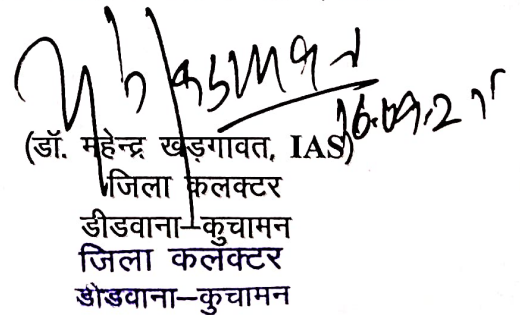 16.09.25
(डॉ. महेन्द्र खड़गावत, IAS)
जिला कलक्टर
डीडवाना–कुचामन
जिला कलक्टर
डीडवाना–कुचामन